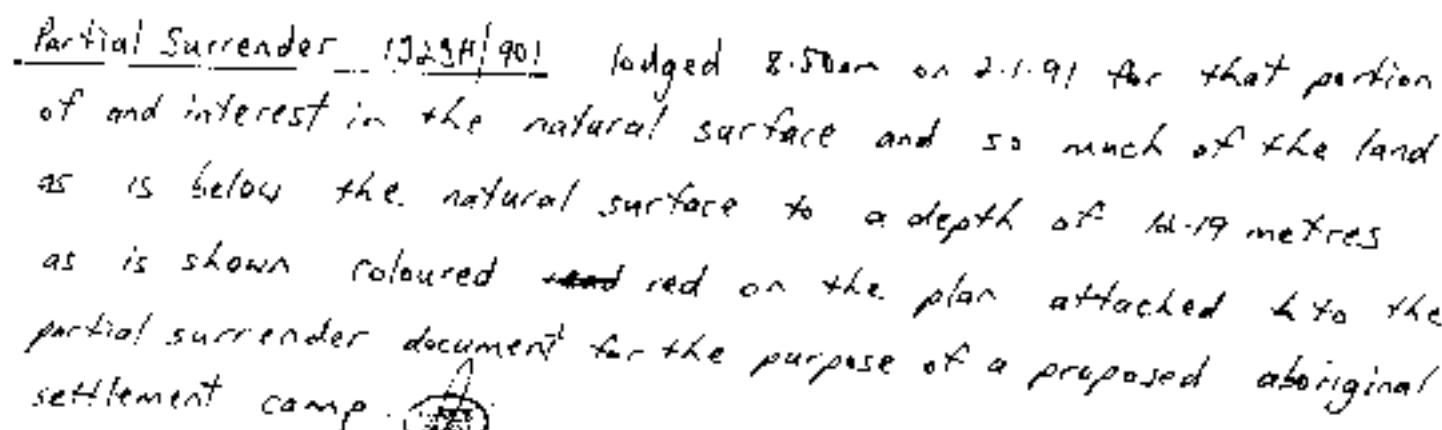 Partial Surrender 1323H/901 lodged 8.50am on 2.1.91 for that portion
of and interest in the natural surface and so much of the land
as is below the natural surface to a depth of 12.19 metres
as is shown coloured red on the plan attached to the
partial surrender document for the purpose of a proposed aboriginal
settlement camp.